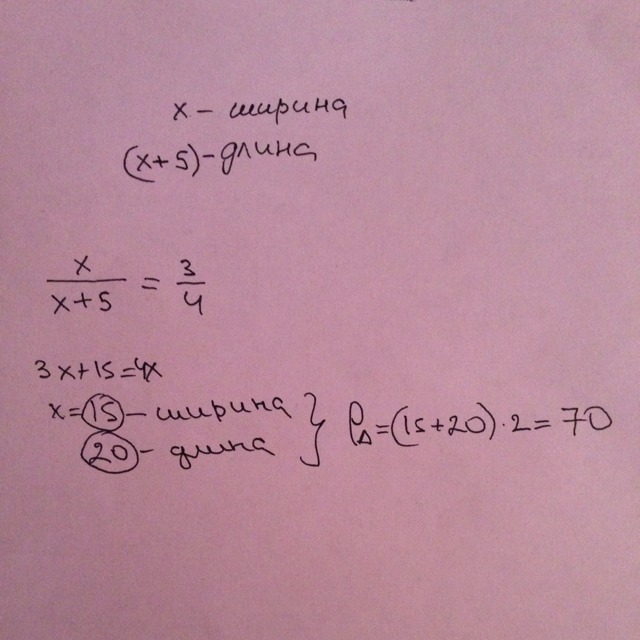 x – ширина
(x+5) – длина
x/x+5 = 3/4
3x+15=4x
x=15 – ширина
20 – длина } PΔ=(15+20)·2=70